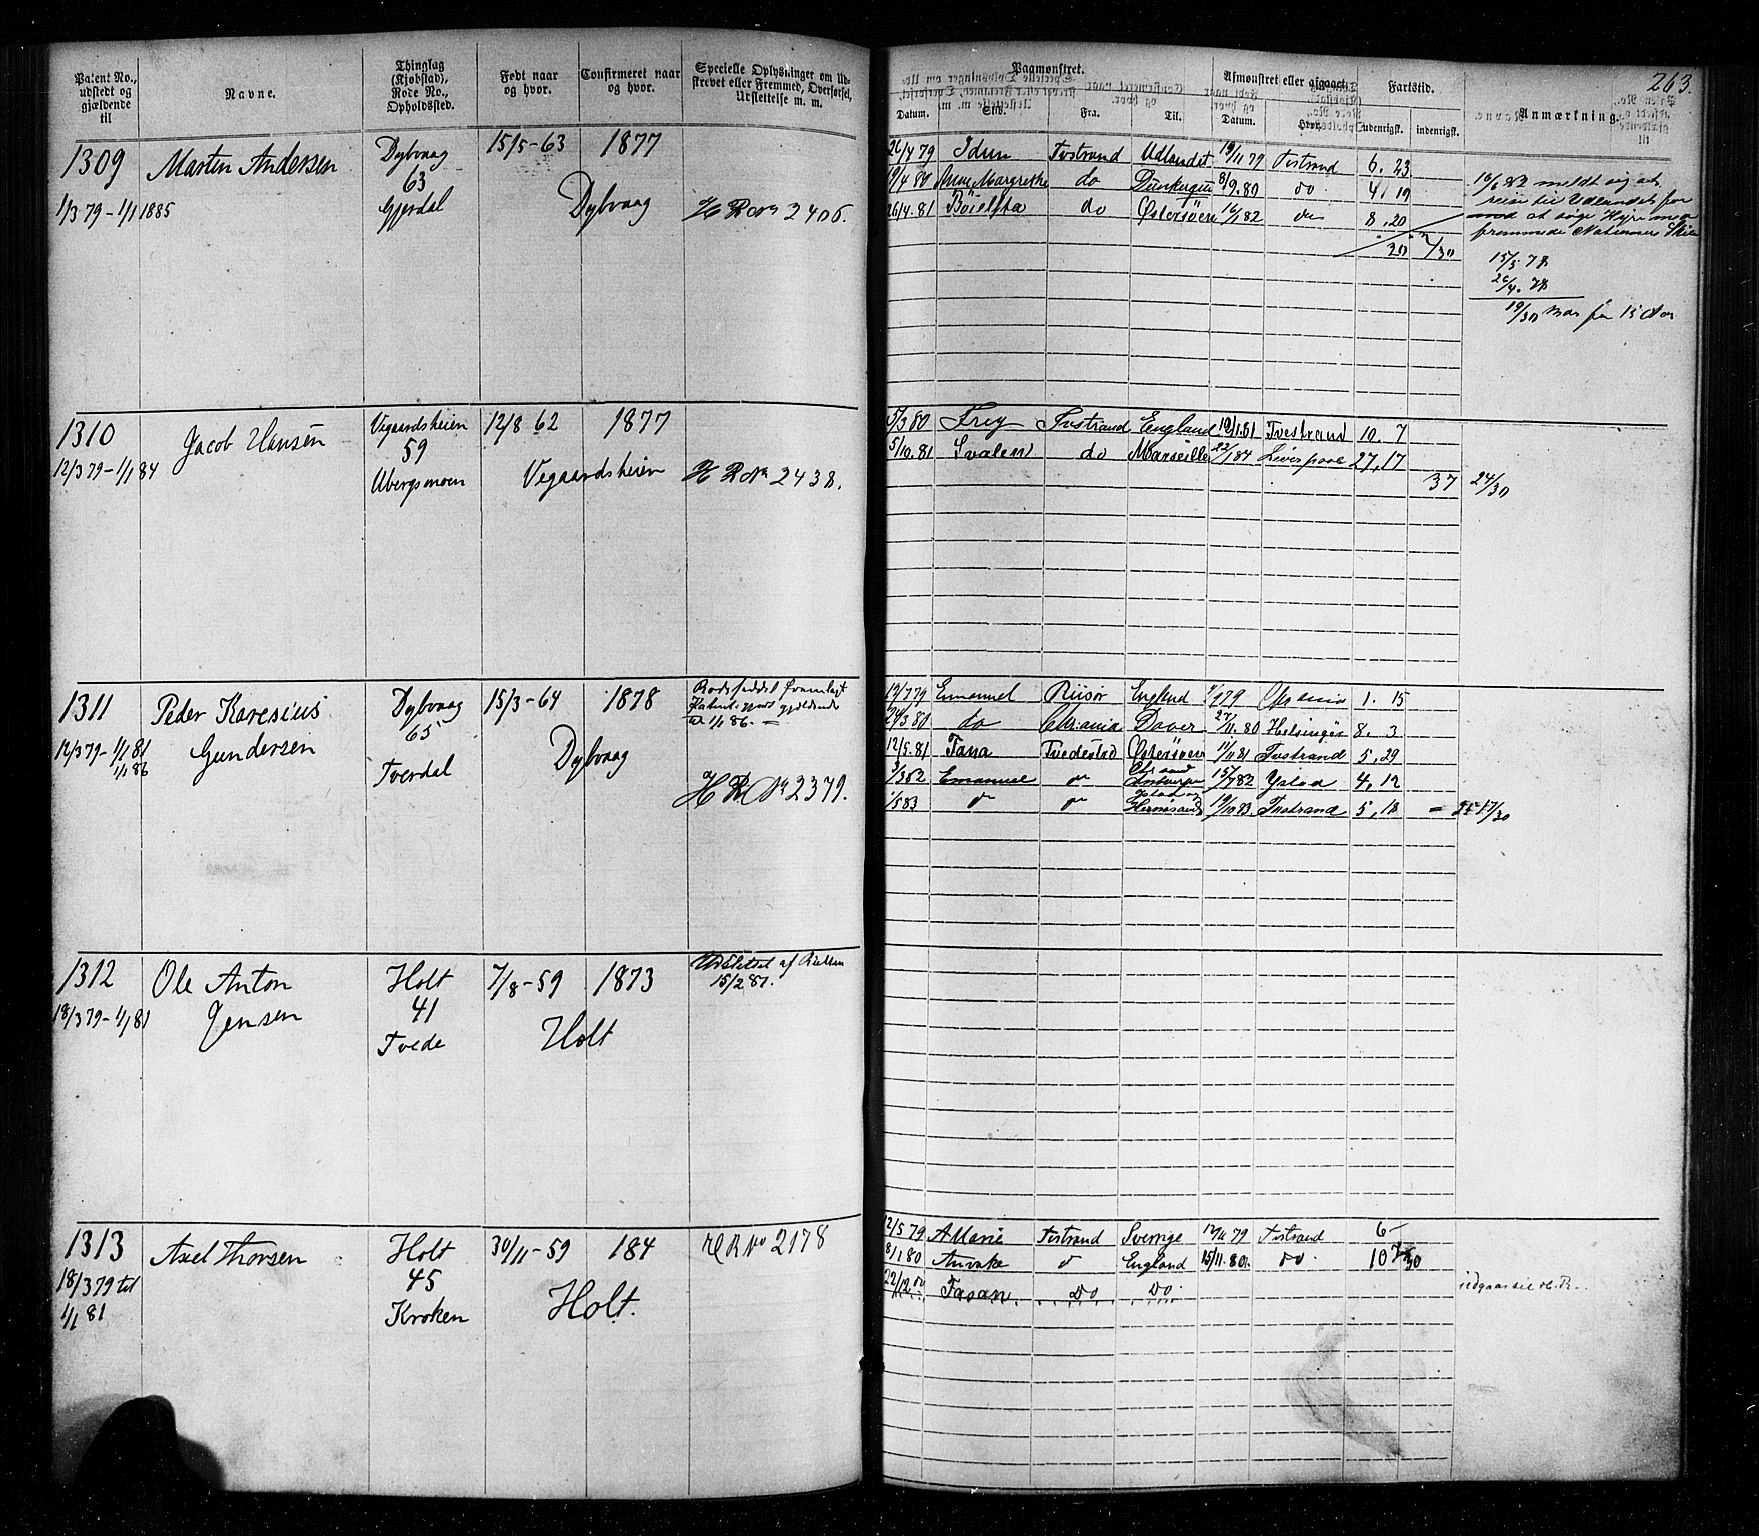 263.
Patent No., udstedt og gjældende til
Navne.
Thinglag (Kjøbstad), Rode No., Opholdssted.
Født naar og hvor.
Confirmeret naar og hvor.
Specielle Oplysninger om Udstrevet eller Fremmed, Overførsel, Udslettelse m. m.
Paamønstret.
Afmønstret eller afgaaet.
Fartstid.
Anmærkning.
Datum.
Skib.
Fra.
Til.
Datum.
Hvor.
udenrigsk.
indenrigsk.
1309 Marten Andersen Dybvaag 15/5-63 1877
63
1/3 79-1/1 1885 Gjerdal Dybvaag H R No 2406.
26/4 79 Idun Tvstrand Udlandet 19/11 79 Tvstrand 6. 23
19/4 80 Anne Margrethe do Dünkerque 8/9.80 do 4. 19
26/4.81 do Østersöen 16/1 82 do 8. 20
20 2/30
16/6 82 meldt sig at
reise til Udlandet for
med at søge Hyre med
fremmede Nationers Skib
15/5 78
26/4. 78
19/30 mdr før 15 Aar
1310 Jacob Hansen Vegaardsheien 12/8 62 1877
59
12/3 79-1/1 84 Ubergsmoen Vegaardsheien H R No 2438.
5/3 80 Frey Tvstrand England Tvestrand 10. 7
5/10.81 Svalen do Marseille 22/1 84 Liverpool 27,17
37 24/30
1311 Peder Karesius Gundersen Dybvaag 15/3-64 1878
65
12/3 79-1/1 81
1/1 86
Tverdal Dybvaag
til 1/1 86. =
H R No 2379.
Emanuel Riisör England Chrania 1. 15
24/3 80 do Chrania Dover 27/11.80 Helsingör 8. 3
12/5.81 Fana Tvedestrd Østersöen 11/11 81 Tvstrand 5,29
Emanuel Antwerpen 15/7 82 Ystad 4,12
1/5 83 Hernösand 19/10 83. Tvstrand 5,18 = 25 17/30
1312 Ole Anton Jensen Holt 7/8-59 1873
41
18/3 79-1/1 81 Tvede Holt
Udslettet af Rullen
15/2 81.
1313 Axel Thorsen Holt 30/11-59 184
45
18/3 79 til
1/1 81
Kroken Holt.
H R No 2178
12/5 79 A Marie Tvstrand Sverrige 12/11 79 Tvstrand 6-
8/1 80 England 15/11 80. do 10
22/12 80 Fasan. Do Do
udgaar til H. R.